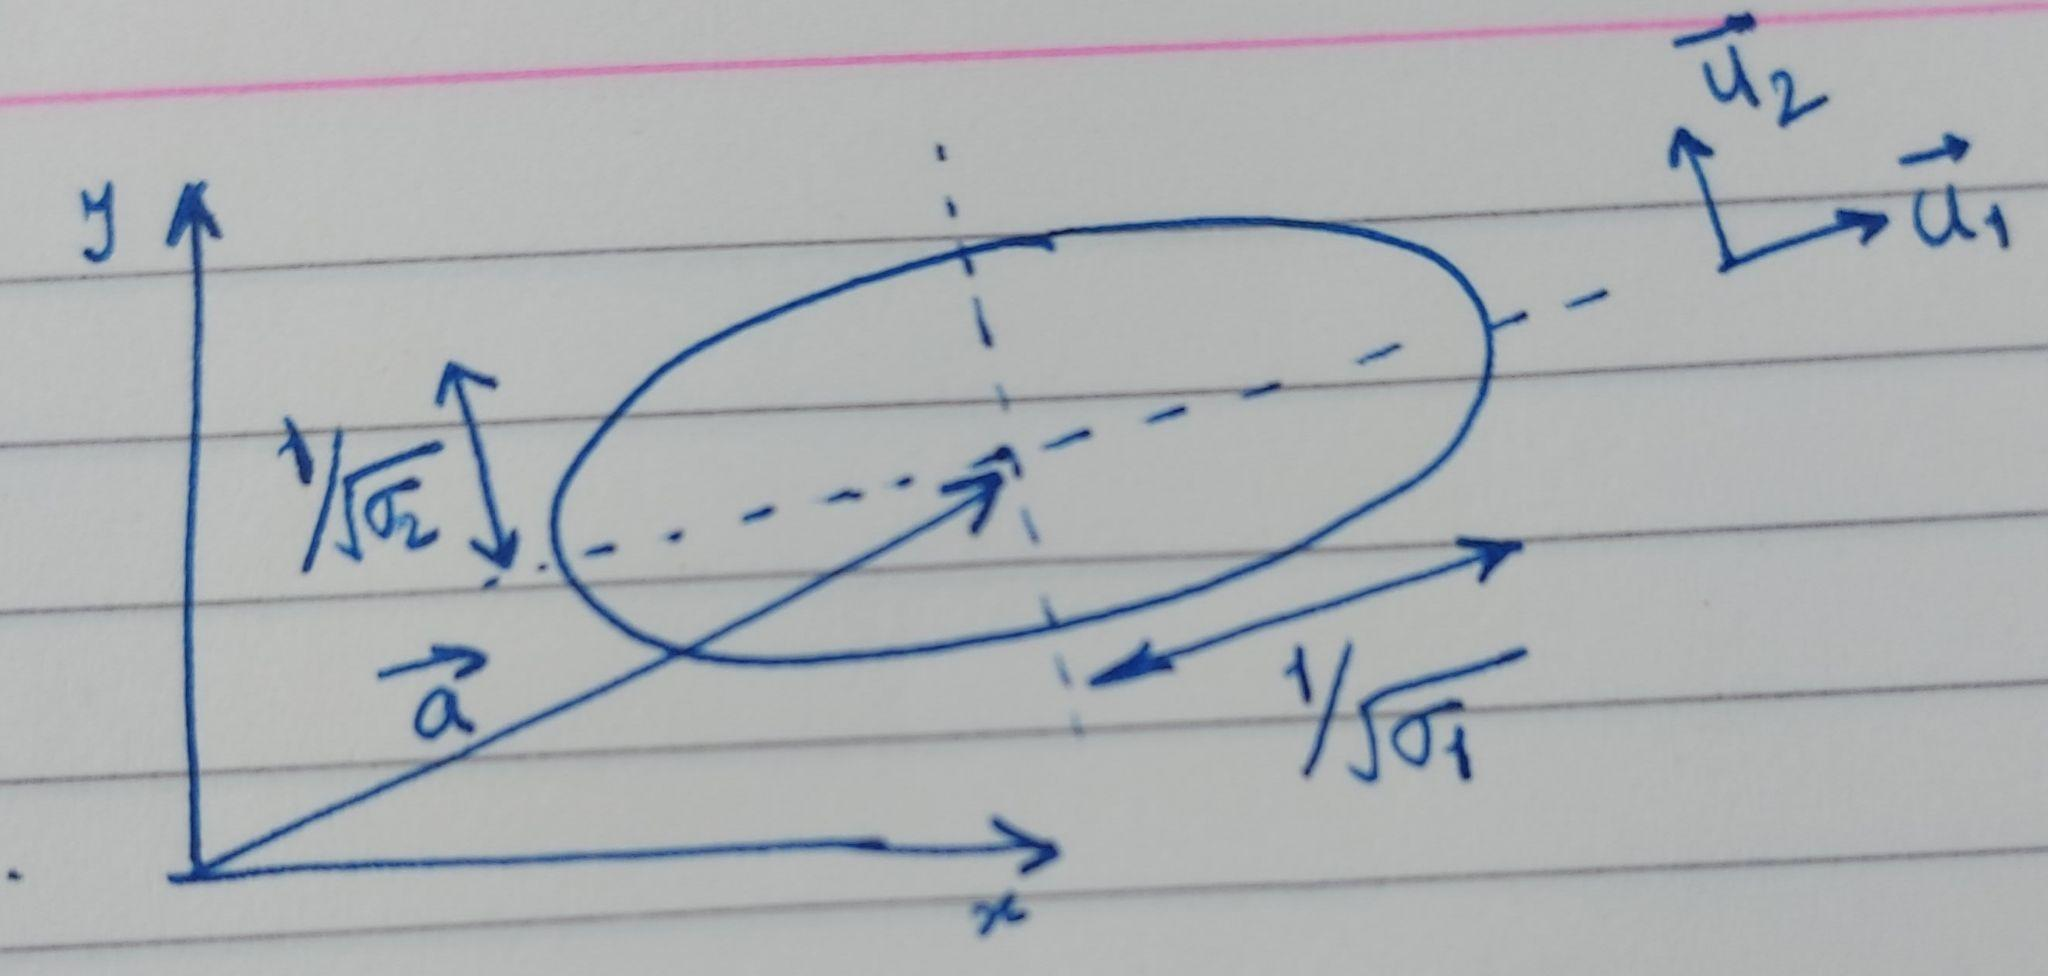 y
u⃗₂
u⃗₁
1/√σ₂
a⃗
1/√σ₁
x